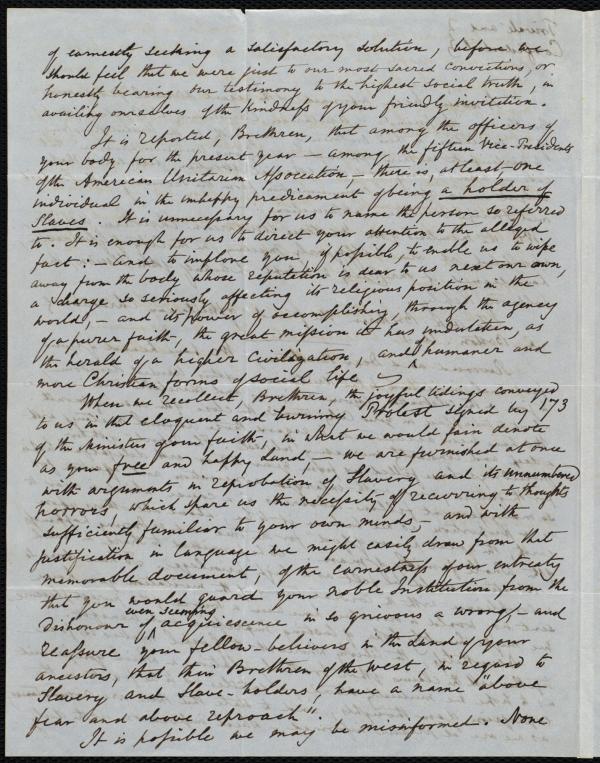 of earnestly seeking a satisfactory solution, before we
should feel that we were just to our most sacred convictions, or
honestly bearing our testimony to the highest social truth, in
availing ourselves of the kindness of your friendly invitation.
It is reported, Brethren, that among the officers of
your body for the present year — among the fifteen Vice-Presidents
of the American Unitarian Association, — there is, at least, one
individual in the unhappy predicament of being a holder of
Slaves. It is unnecessary for us to name the person so referred
to. It is enough for us to direct your attention to the alleged
fact: — and to implore you, if possible, to enable us to wipe
away from the body whose reputation is dear to us next our own,
a charge so seriously affecting its religious position in the
world, — and its power of accomplishing, through the agency
of a purer faith, the great mission it has undertaken, as
the herald of a higher Civilization, and of humaner and
more Christian forms of social life
When we recollect, Brethren, the joyful tidings conveyed
to us in that eloquent and burning Protest signed by 173
of the Ministers of our faith, in what we would fain denote
as your free and happy Land, — we are furnished at once
with arguments in reprobation of Slavery and its unnumbered
horrors, which spare us the necessity of recurring to thoughts
sufficiently familiar to your own minds, — and with
justification in language we might easily draw from that
memorable document, of the earnestness of our entreaty
that you would guard your noble Institution from the
dishonour of even seeming acquiescence in so grievous a wrong, — and
reassure your fellow-believers in the Land of your
ancestors, that their Brethren of the west, in regard to
Slavery and Slave-holders, have a name "above
fear and above reproach".
It is possible we may be misinformed. None